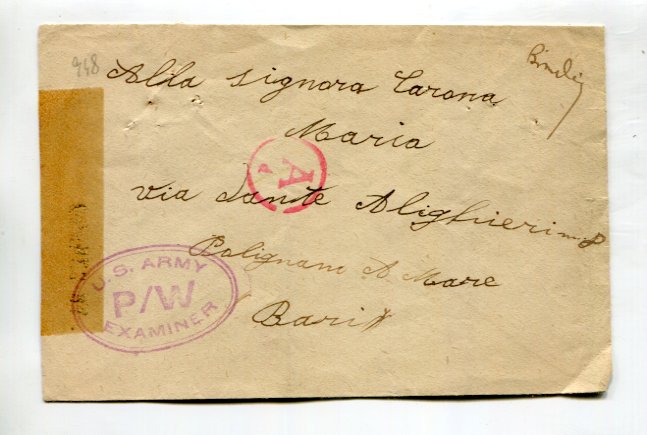 948
Alla signora Carona
Maria
via Dante Alighieri n 8
Polignano A Mare
Bari
A
U.S. ARMY
P/W
EXAMINER